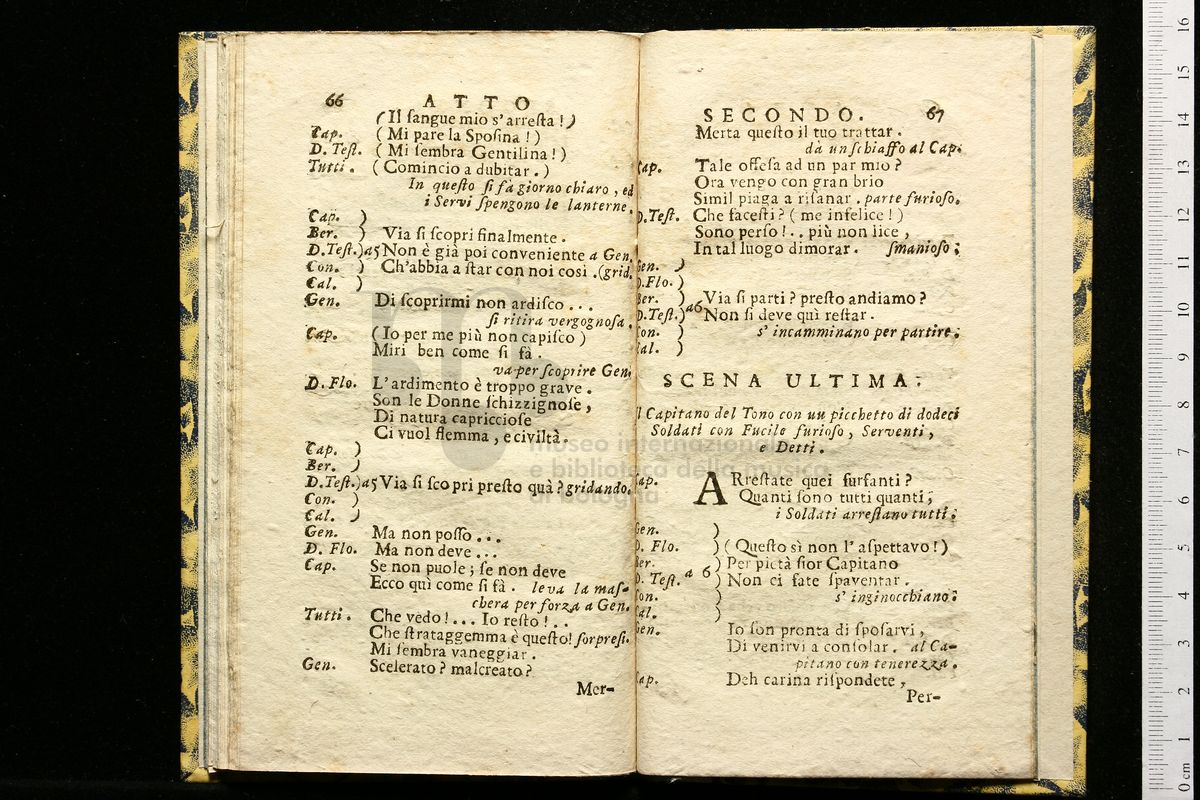 66 ATTO
(Il ſangue mio s'arreſta!)
Cap. (Mi pare la Spoſina!)
D. Teſt. (Mi ſembra Gentilina!)
Tutti. (Comincio a dubitar.)
In queſto ſi fa giorno chiaro, ed
i Servi ſpengono le lanterne.
Cap. )
Ber. ) Via ſi ſcopri finalmente.
D.Teſt.)a5 Non è già poi conveniente a Gen.
Con. ) Ch'abbia a ſtar con noi così. (grid.
Cal. )
Gen. Di ſcoprirmi non ardiſco...
ſi ritira vergognoſa.
Cap. (Io per me più non capiſco)
Miri ben come ſi fà.
va per ſcoprire Gen.
D. Flo. L'ardimento è troppo grave.
Son le Donne ſchizzignoſe,
Di natura capriccioſe
Ci vuol flemma, e civiltà.
Cap. )
Ber. )
D.Teſt.)a5 Via ſi ſcopri preſto quà? gridando.
Con. )
Cal. )
Gen. Ma non poſſo...
D. Flo. Ma non deve...
Cap. Se non puole; ſe non deve
Ecco quì come ſi fà. leva la maſ-
chera per forza a Gen.
Tutti. Che vedo!... Io reſto!..
Che ſtrataggemma è queſto! ſorpreſi.
Mi ſembra vaneggiar.
Gen. Scelerato? malcreato?
Mer-
SECONDO. 67
Merta queſto il tuo trattar.
dà un ſchiaffo al Cap.
Cap. Tale offeſa ad un par mio?
Ora vengo con gran brio
Simil piaga a riſanar. parte furioſo.
D.Teſt. Che faceſti? (me infelice!)
Sono perſo!.. più non lice,
In tal luogo dimorar. ſmanioſo;
Gen. )
D.Flo. )
Ber. ) Via ſi parti? preſto andiamo?
D.Teſt.)a6 Non ſi deve quì reſtar.
Con. ) s'incamminano per partire;
Cal. )
SCENA ULTIMA.
Il Capitano del Tono con un picchetto di dodeci
Soldati con Fucile furioſo, Serventi,
e Detti.
Cap. ARreſtate quei furfanti?
Quanti ſono tutti quanti;
i Soldati arreſtano tutti;
Gen. )
D. Flo. ) (Queſto sì non l'aſpettavo!)
Ber. ) Per pietà ſior Capitano
D. Teſt. a 6 ) Non ci fate ſpaventar.
Con. ) s'inginocchiano;
Cal. )
Gen. Io ſon pronta di ſpoſarvi,
Di venirvi a conſolar. al Ca-
pitano con tenerezza.
Cap. Deh carina riſpondete,
Per-
museo internazionale
e biblioteca della musica
di bologna
0 cm 1 2 3 4 5 6 7 8 9 10 11 12 13 14 15 16